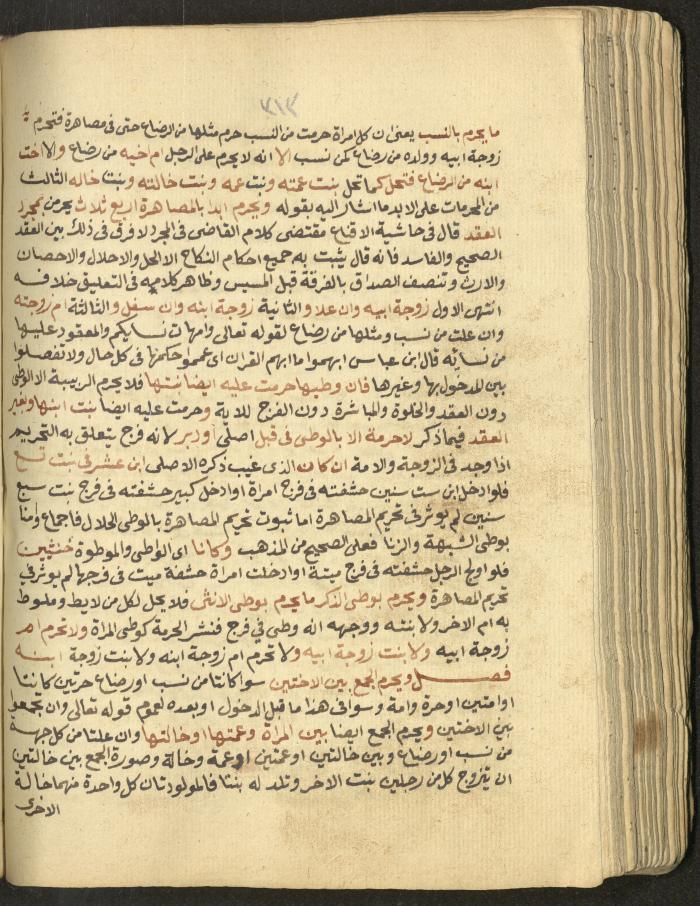 ٣١٢
ما يحرم بالنسب يعني ان كل امراة حرمت من النسب حرم مثلها من الرضاع حتى في مصاهرة فتحرم
زوجة ابيه وولده من رضاع كمن نسب الا انه لا يحرم على الرجل ام اخيه من رضاع والا اخت
ابنه من الرضاع فتحل كما تحل بنت عمته وبنت عمه وبنت خالته وبنت خاله الثالث
من المحرمات على الابد ما اشار اليه بقوله ويحرم ابدا بالمصاهرة اربع ثلاث يحرمن بمجرد
العقد قال في حاشية الاقناع مقتضى كلام القاضي في المجرد لا فرق في ذلك بين العقد
الصحيح والفاسد فانه قال يثبت به جميع احكام النكاح الا الحل والاحلال والاحصان
والارث وتنصف الصداق بالفرقة قبل المسيس وظاهر كلامه في التعليق خلافه
انتهى الاول زوجة ابيه وان علا والثانية زوجة ابنه وان سفل والثالثة ام زوجته
وان علت من نسب ومثلها من رضاع لقوله تعالى وامهات نسايكم والمعقود عليها
من نسائه قال ابن عباس ابهموا ما ابهم القران اي عمموا حكمها في كل حال ولا تفصلوا
بين المدخول بها وغيرها فان وطيها حرمت عليه ايضا بنتها فلا يحرم الربيبة الا الوطي
دون العقد والخلوة والمباشرة دون الفرج للاية وحرمت عليه ايضا بنت ابنها وبغير
العقد فيما ذكر لا حرمة الا بالوطي في قبل اصلي او دبر لانه فرج يتعلق به التحريم
اذا وجد في الزوجة والامة ان كان الذي غيب ذكره الاصلي ابن عشر في بنت تسع
فلو ادخل ابن ست سنين حشفته في فرج امراة او ادخل كبير حشفته في فرج بنت سبع
سنين لم يوثر في تحريم المصاهرة اما ثبوت تحريم المصاهرة بالوطي الحلال فاجماع وامنا
بوطي الشبهة والزنا فعلى الصحيح من المذهب وكانا اي الواطي والموطوة حيين
فلو اولج الرجل حشفته في فرج ميتة او ادخلت امراة حشفة ميت في فرجها لم يوثر في
تحريم المصاهرة ويحرم بوطي الذكر ما يحرم بوطي الانثى فلا يحل لكل من لايط وملوط
به ام الاخر ولا بنته ووجهه انه وطي في فرج فنشر الحرمة كوطي المراة ولا تحرم ام
زوجة ابيه ولا بنت زوجة ابيه ولا تحرم ام زوجة ابنه ولا بنت زوجة ابنه
فصل ويحرم الجمع بين الاختين سوا كانتا من نسب او رضاع حرتين كانتا
او امتين او حرة وامة وسوا في هذا ما قبل الدخول او بعده لعموم قوله تعالى وان تجمعوا
بين الاختين ويحرم الجمع ايضا بين المراة وعمتها او خالتها وان علتا من كل جهة
من نسب او رضاع وبين خالتين او عمتين او عمة وخالة وصورة الجمع بين خالتين
ان يتزوج كل من رجلين بنت الاخر وتلد له بنتا فالمولودتان كل واحدة منهما خالة
الاخرى